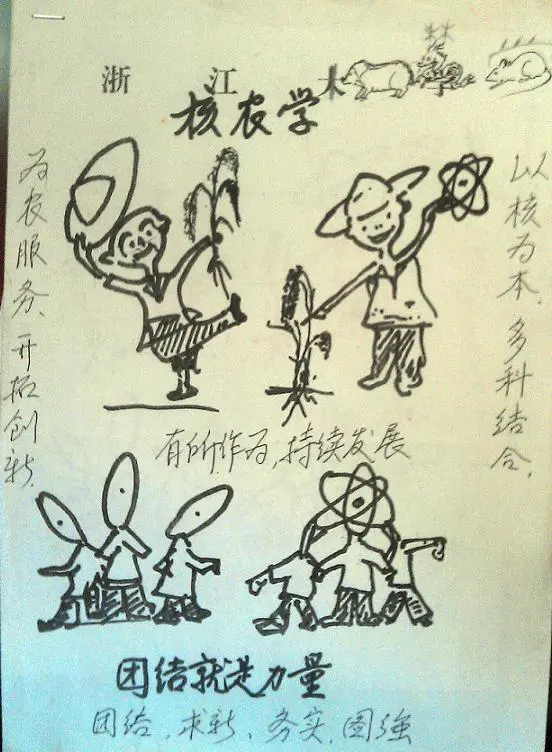 浙 江
核农学
以核为本,多科结合,
为农服务、开拓创新,
有所作为,持续发展
团结就是力量
团结、求新、务实、图強